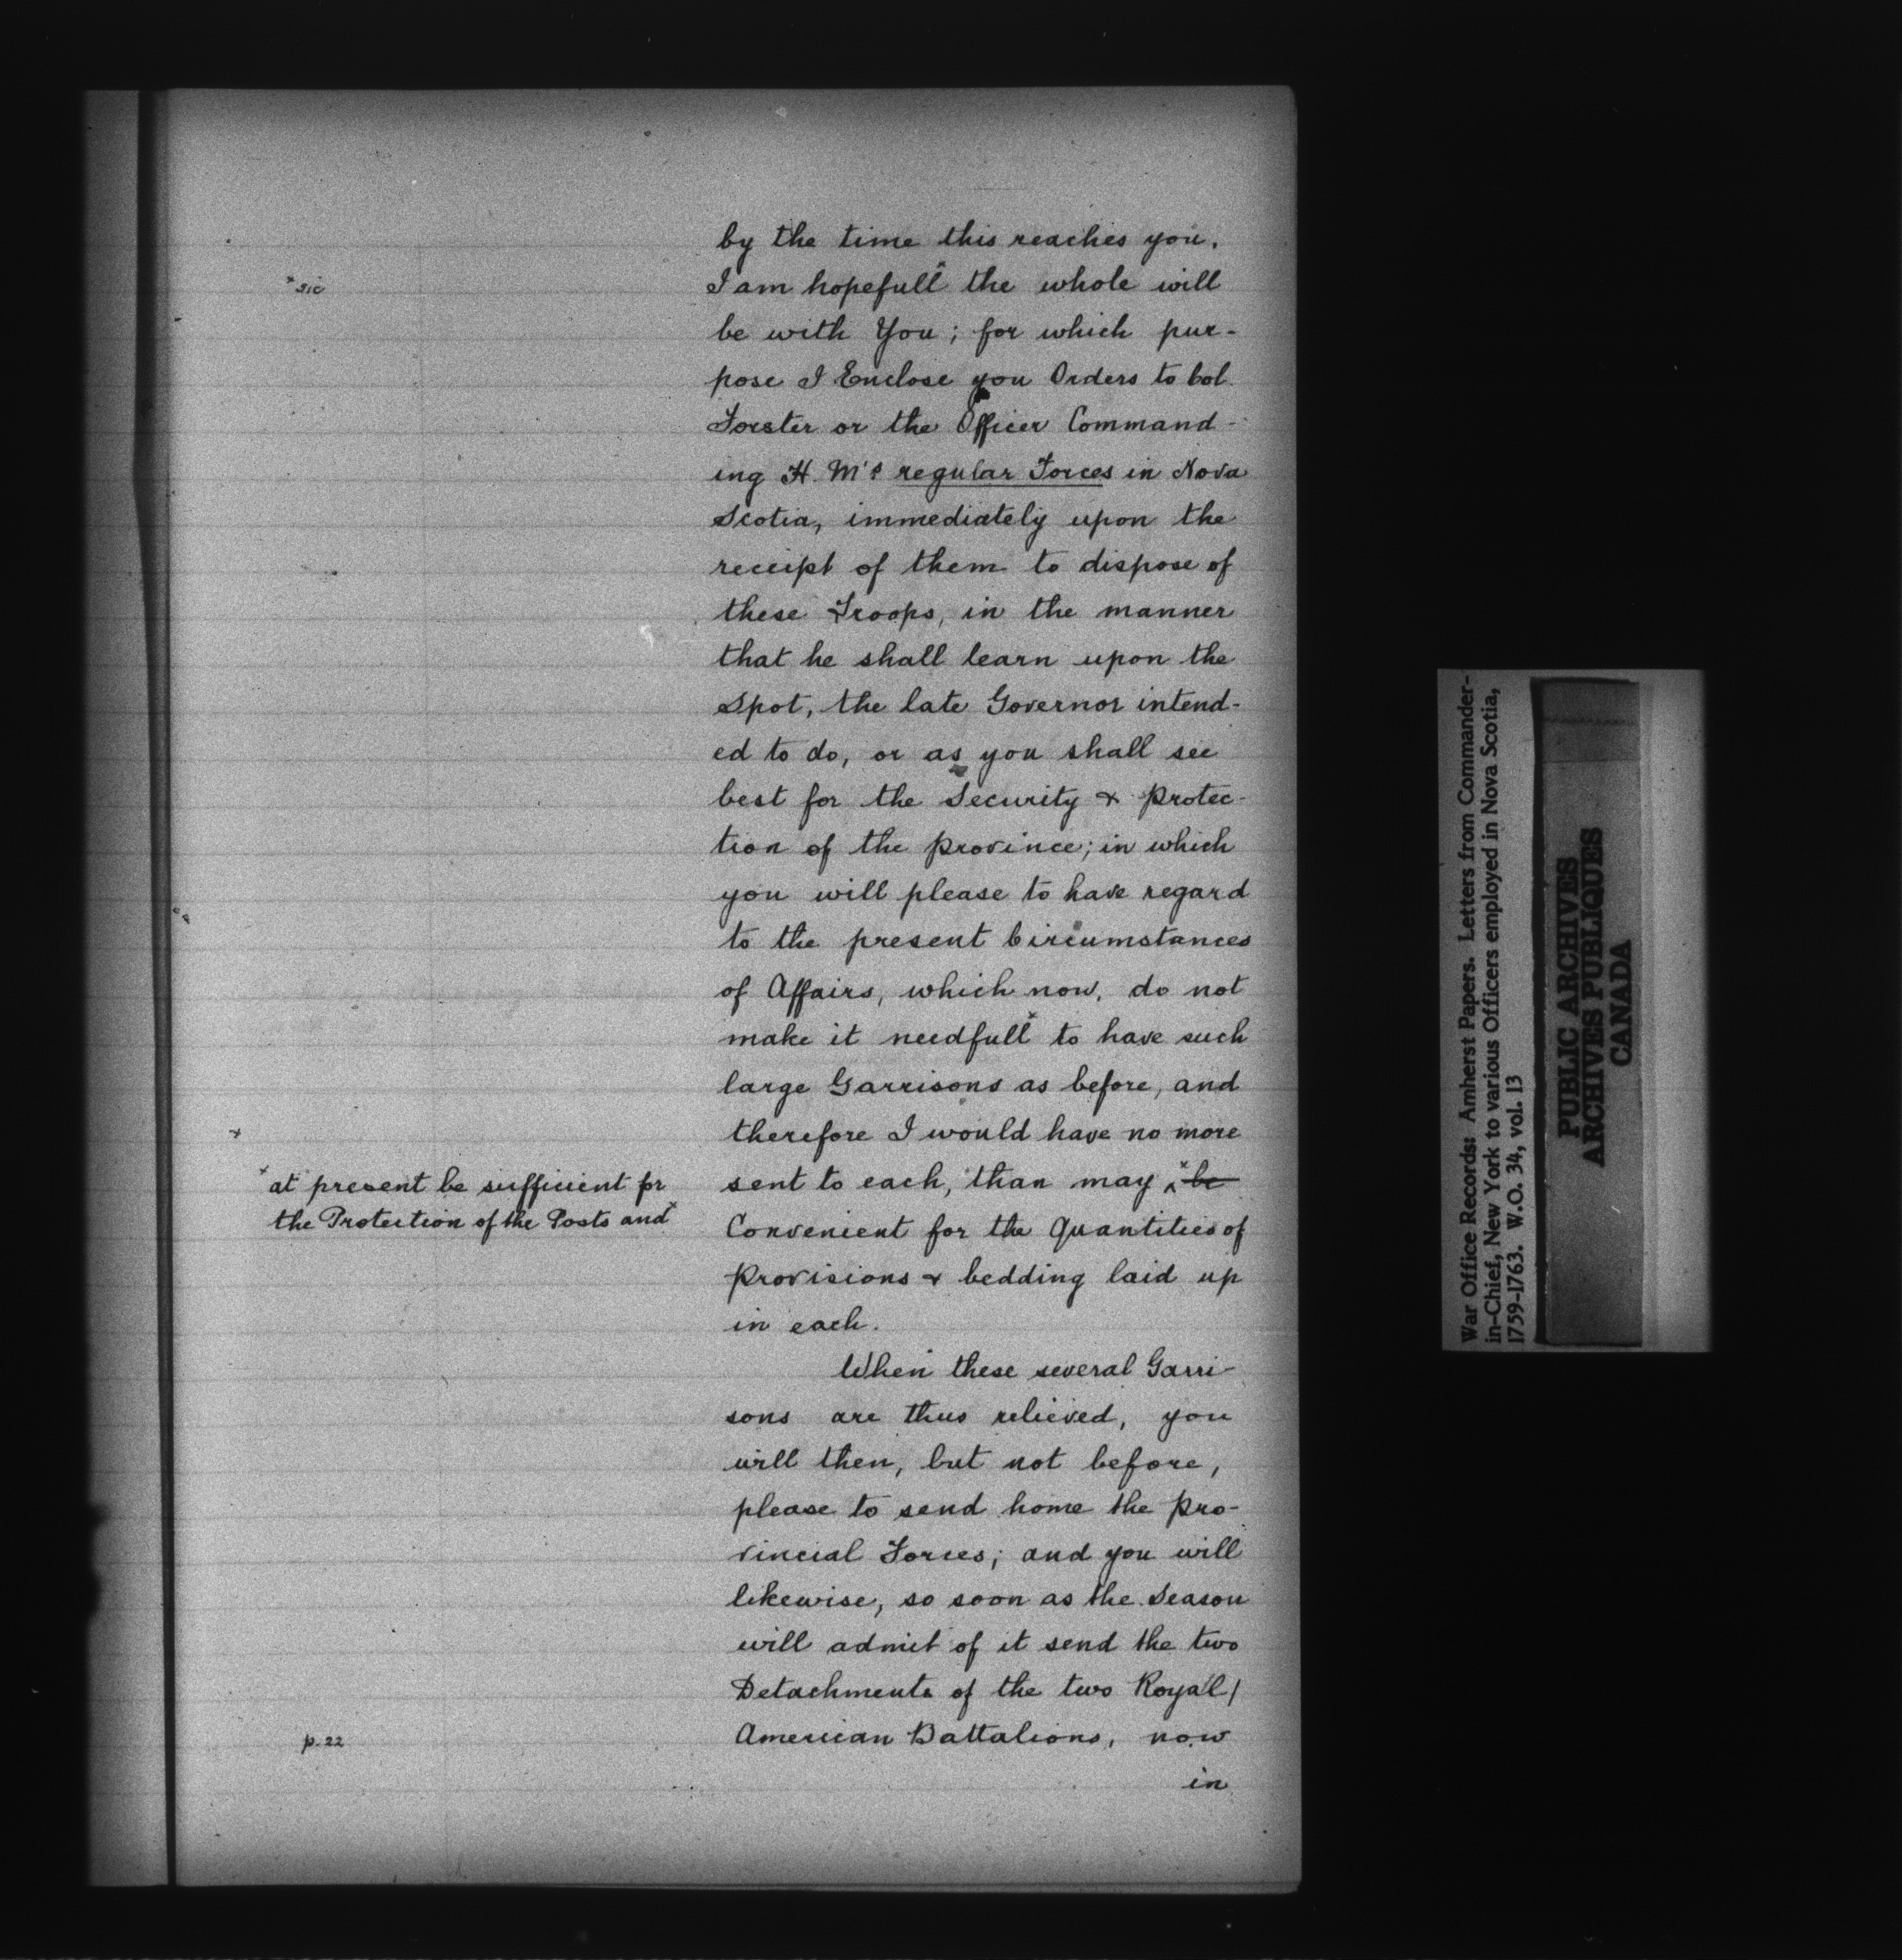 by the time this reaches you,
x sic
I am hopefull x the whole will
be with You; for which pur-
pose I Enclose you Orders to Col.
Forster or the Officer Command-
ing H. M's regular Forces in Nova
Scotia, immediately upon the
receipt of them to dispose of
these Troops, in the manner
that he shall learn upon the
Spot, the late Governor intend-
ed to do, or as you shall see
best for the Security & Protec-
tion of the Province; in which
you will please to have regard
to the present Circumstances
of Affairs, which now, do not
make it needfull x to have such
large Garrisons as before, and
x
therefore I would have no more
sent to each, than may ^ x be
x at present be sufficient for
the Protection of the Posts and x
Convenient for the Quantities of
Provisions & bedding laid up
in each.
When these several Garri-
sons are thus relieved, you
will then, but not before,
please to send home the Pro-
vincial Forces; and you will
likewise, so soon as the Season
will admit of it send the two
Detachments of the two Royal/
p. 22
American Battalions, now
in
War Office Records: Amherst Papers. Letters from Commander-
in-Chief, New York to various Officers employed in Nova Scotia,
1759-1763. W.O. 34, vol. 13
PUBLIC ARCHIVES
ARCHIVES PUBLIQUES
CANADA